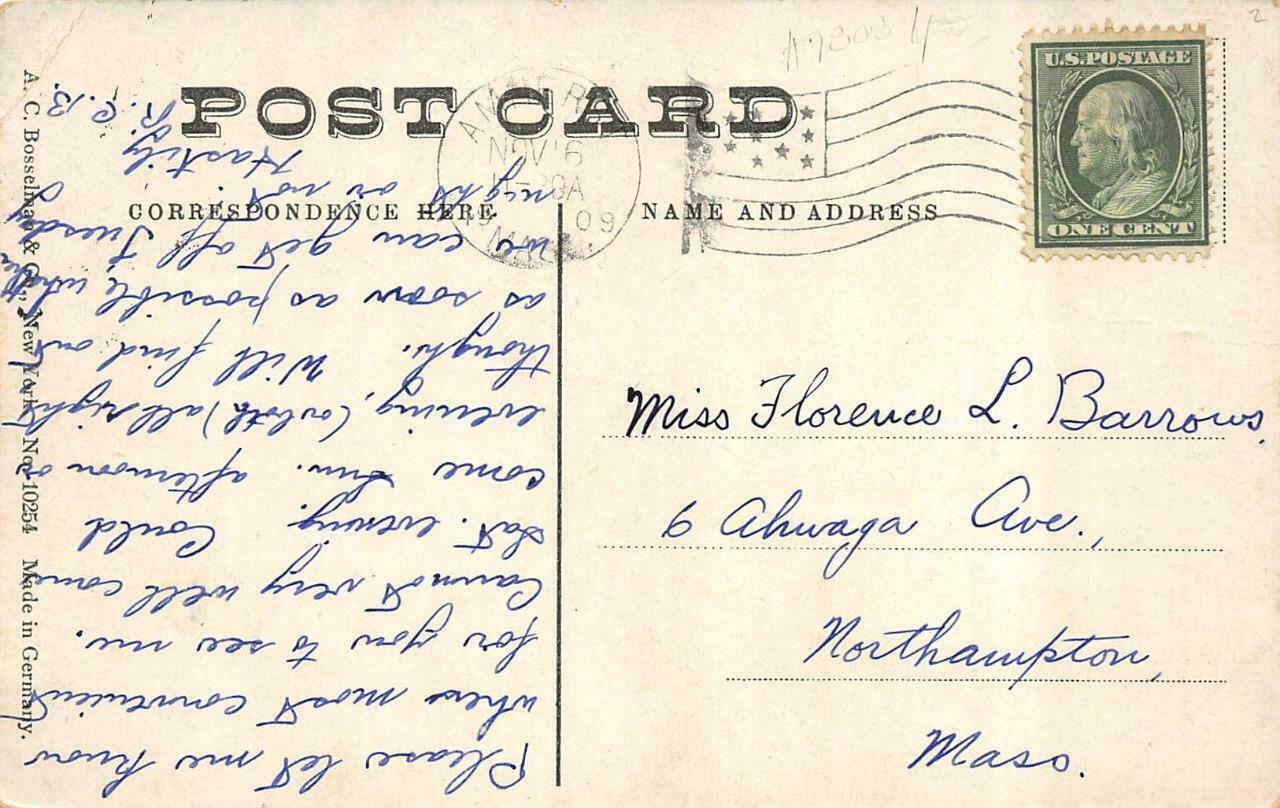 #7808
2
POST CARD
AMHERST
NOV 6
09
MASS.
U.S. POSTAGE
ONE CENT
CORRESPONDENCE HERE.
NAME AND ADDRESS
Miss Florence L. Barrows,
6 Ahwaga Ave.,
Northampton,
Mass.
Please let me know
when most convenient
for you to see me.
Cannot very well come
Sat. evening. Could
come Sun. afternoon or
evening, (or both) all right
though. Will find out
as soon as possible whether
we can get off Tuesday
night or not.
Hastily
R. C. B.
A. C. Bosselman & Co., New York. No. 10254 Made in Germany.